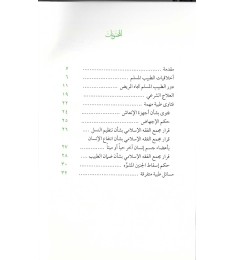 المحتويات
مقدمة ٥
أخلاقيات الطبيب المسلم ٦
دور الطبيب المسلم اتجاه المريض ١١
العلاج الشرعي ١٦
فتاوى طبية مهمة
فتوى بشأن أجهزة الإنعاش ٢٤
حكم الإجهاض ٢٥
قرار مجمع الفقه الإسلامي بشأن تنظيم النسل
قرار مجمع الفقه الإسلامي بشأن انتفاع الإنسان
بأعضاء جسم إنسان آخر حياً أو ميتاً
قرار مجمع الفقه الإسلامي بشأن ضمان الطبيب
حكم إسقاط الجنين المشوه
مسائل طبية متفرقة